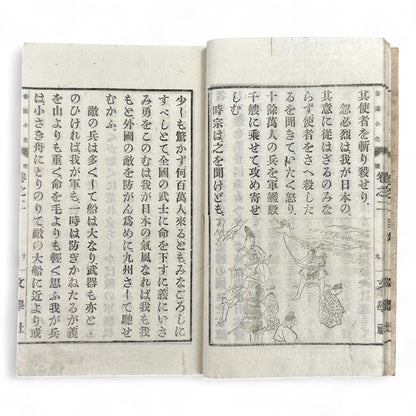 其使者を斬り殺せり、
忽必烈は我が日本の
其意に從はざるのみな
らず使者をさへ殺した
るを聞きていたく怒り、
十餘萬人の兵を軍艦數
千艘に乘せて攻め寄せ
しむ、
時宗は之を聞けども、
少しも驚かず何百萬人來るともみなごろしに
すべしとて全國の武士に命を下すに義にいさ
み勇をこのむは我が日本の氣風なれば我も我
もと外國の敵を防がん爲めに九州さして馳せ
むかふ、
敵の兵は多くして船は大なり武器も亦とゝ
のひければ我が軍も一時は防ぎかねたるが義
を山よりも重く命を毛よりも輕く思ふ我が兵
は小さき舟にとりのりて敵の大船に近より或
卷之二
十
文學社